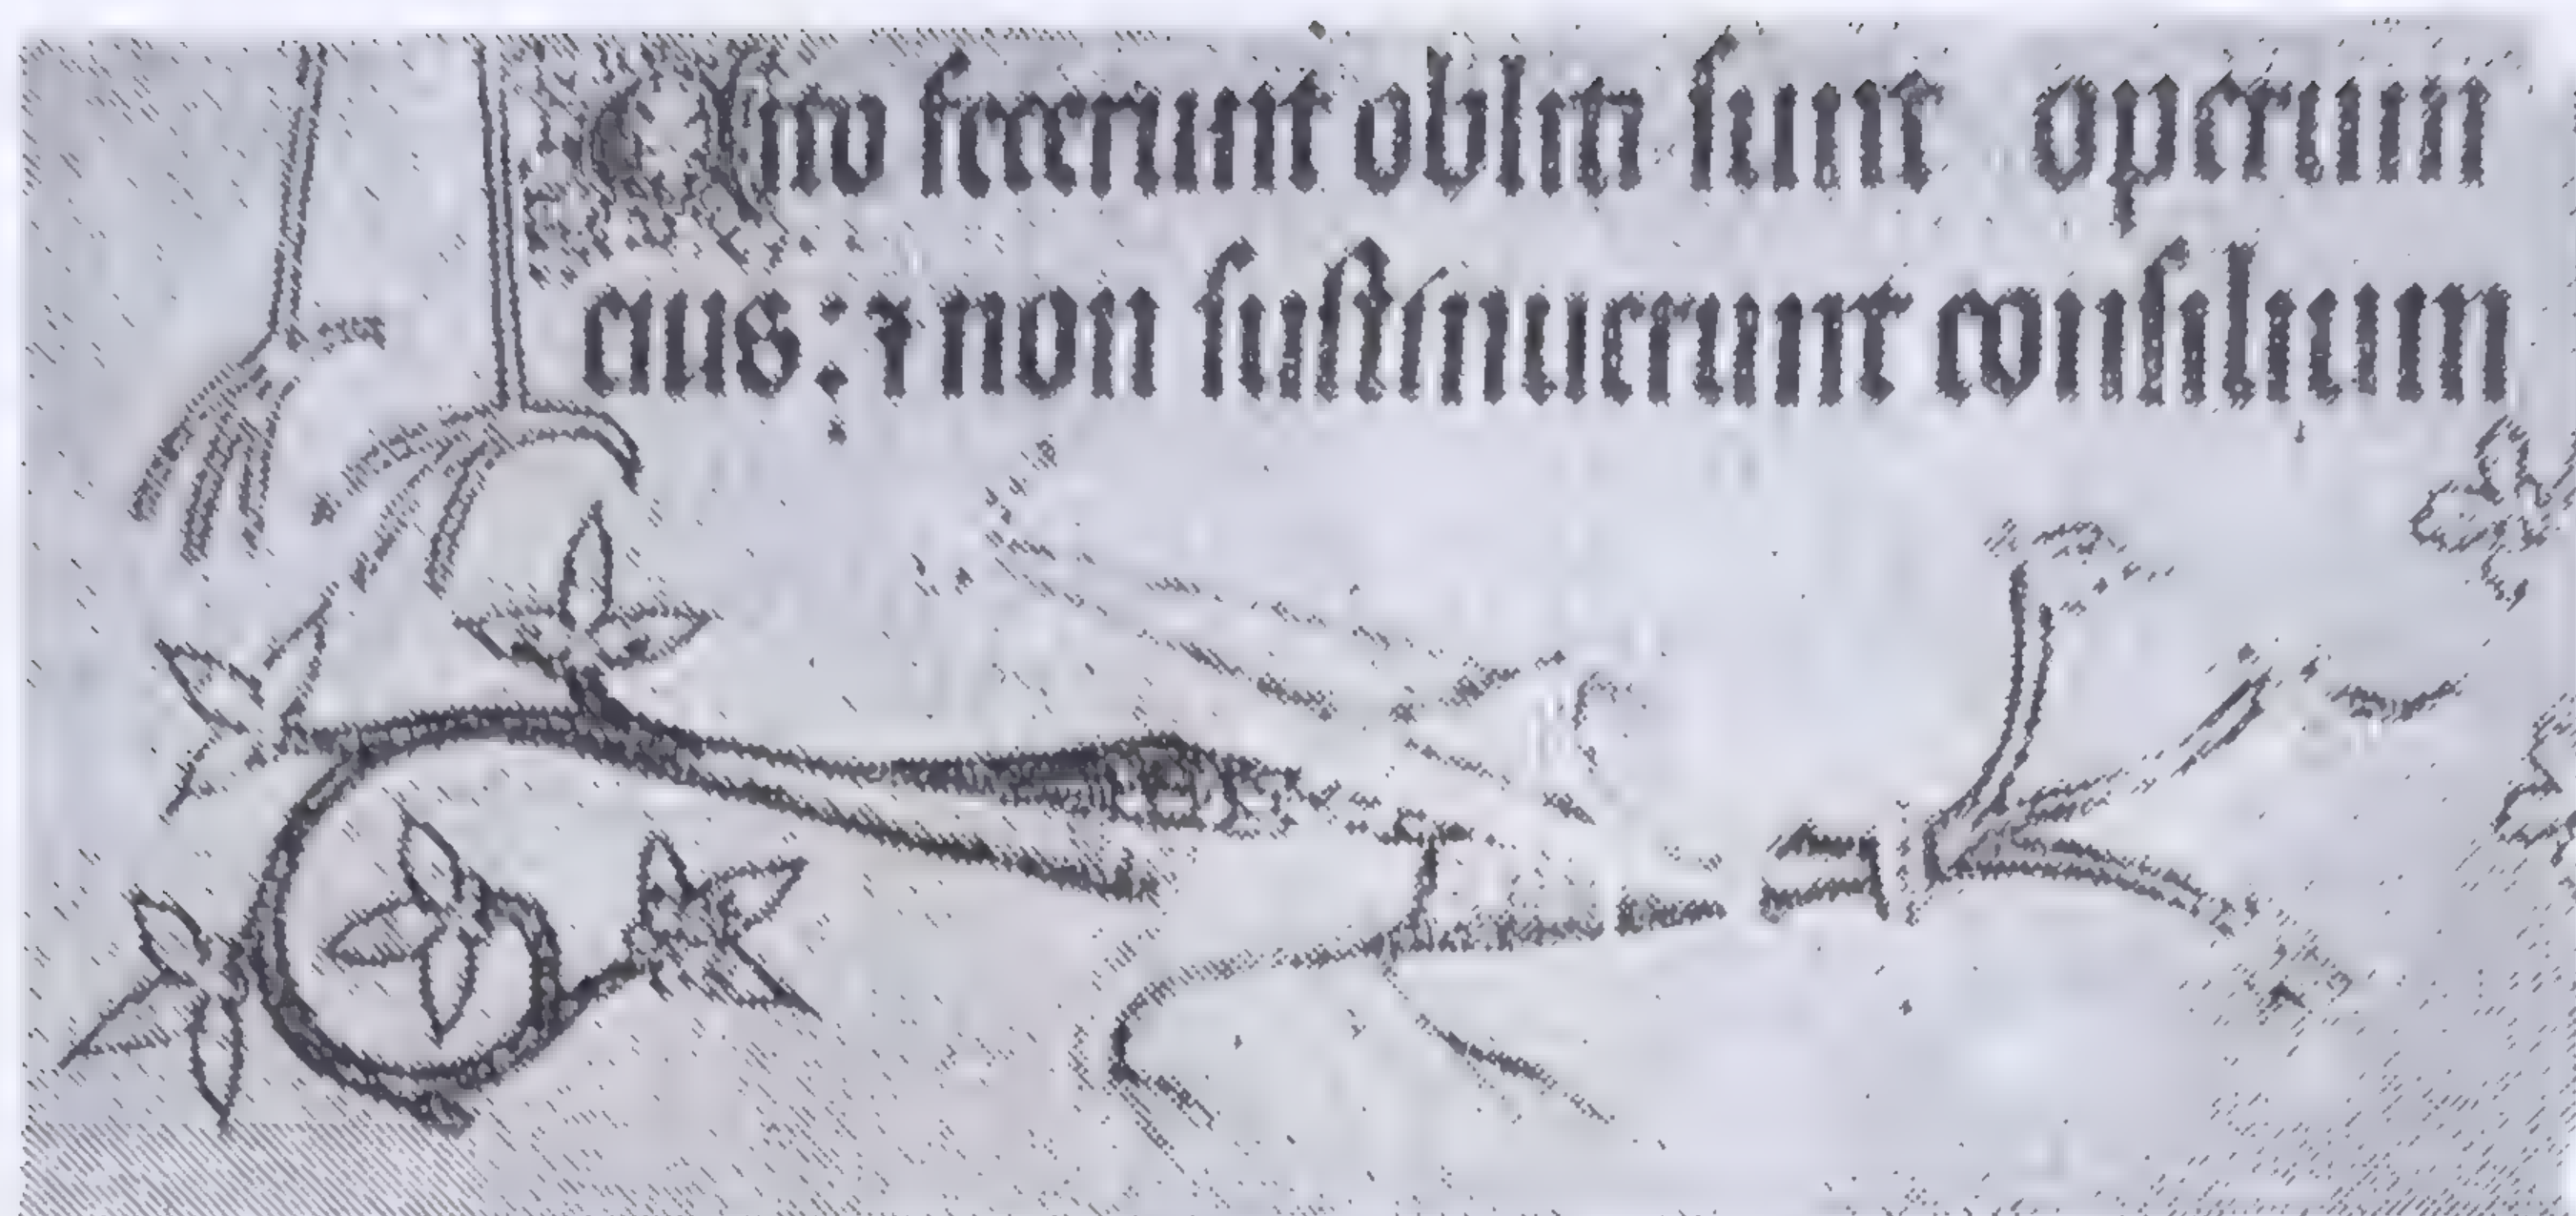 Cito fecerunt obliti sunt operum
eius: ⁊ non sustinuerunt consilium